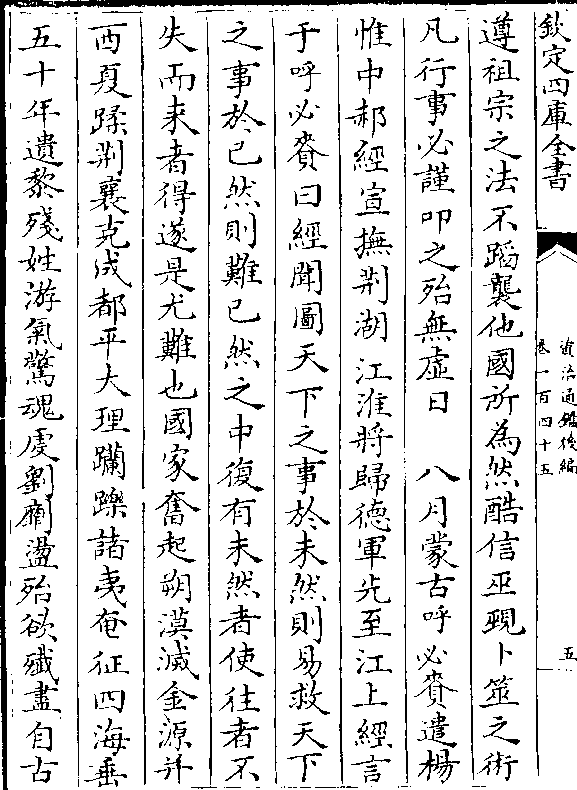 欽定四庫全書
資治通鑑後編
卷一百四十五
五
遵祖宗之法不蹈襲他國所為然酷信巫覡卜筮之術
凡行事必謹叩之殆無虛日　八月蒙古呼必賚遣楊
惟中郝經宣撫荆湖江淮將歸德軍先至江上經言
于呼必賚曰經聞圖天下之事於未然則易救天下
之事於已然則難已然之中復有未然者使往者不
失而来者得遂是尤難也國家奮起朔漠滅金源并
西夏蹂荆襄克成都平大理躪躒諸夷奄征四海垂
五十年遺黎殘姓游氣驚魂虔劉劘盪殆欲殱盡自古